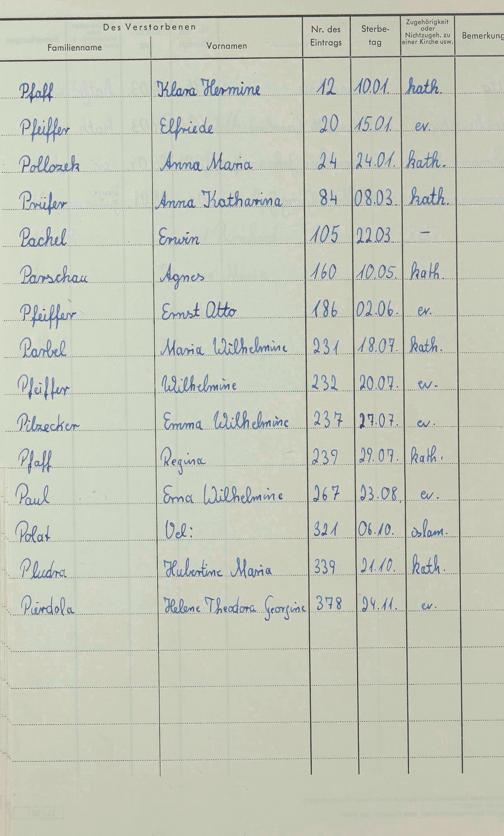 Des Verstorbenen
Familienname Vornamen Nr. des Eintrags Sterbe-tag Zugehörigkeit oder Nichtzugeh. zu einer Kirche usw. Bemerkung
Pfaff Klara Hermine 12 10.01. kath.
Pfeiffer Elfriede 20 15.01. ev.
Pollozek Anna Maria 24 24.01. kath.
Prüfer Anna Katharina 84 08.03. kath.
Pachel Erwin 105 22.03. –
Parschau Agnes 160 10.05. kath.
Pfeiffer Ernst Otto 186 02.06. ev.
Parbel Maria Wilhelmine 231 18.07. kath.
Pfeiffer Wilhelmine 232 20.07. ev.
Pilzecker Emma Wilhelmine 237 27.07. ev.
Pfaff Regina 239 29.07. kath.
Paul Erna Wilhelmine 267 23.08. ev.
Polat 321 06.10. islam.
Pludra Hubertine Maria 339 21.10. kath.
Helene Theodora Georgine 378 24.11. ev.